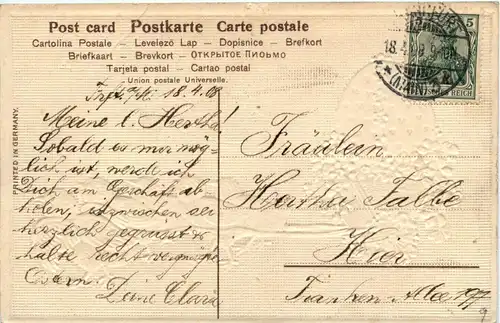 Post card Postkarte Carte postale
Cartolina Postale – Levelező Lap – Dopisnice – Brefkort
Briefkaart – Brevkort – ОТКРЫТОЕ ПИСЬМО
Tarjeta postal – Cartao postal
Union postale Universelle.
PRINTED IN GERMANY.
5
18.4.
(MAIN)
REICH
18.4.08
Meine l. Hertha!
Sobald es mir mög-
lich ist, werde ich
Dich am Geschäft ab-
holen, inzwischen sei
herzlich gegrüsst &
halte recht vergnügte
Ostern.
Deine Clara
Fräulein
Hertha Falbe
Hier
Franken-Allee 177
9